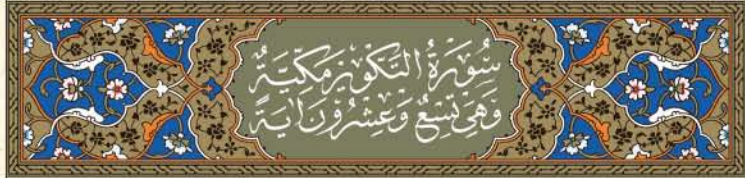 سُورَةُ التَّكْوِيرِ مَكِّيَّةٌ
وَهِيَ تِسْعٌ وَعِشْرُونَ اٰيَةً